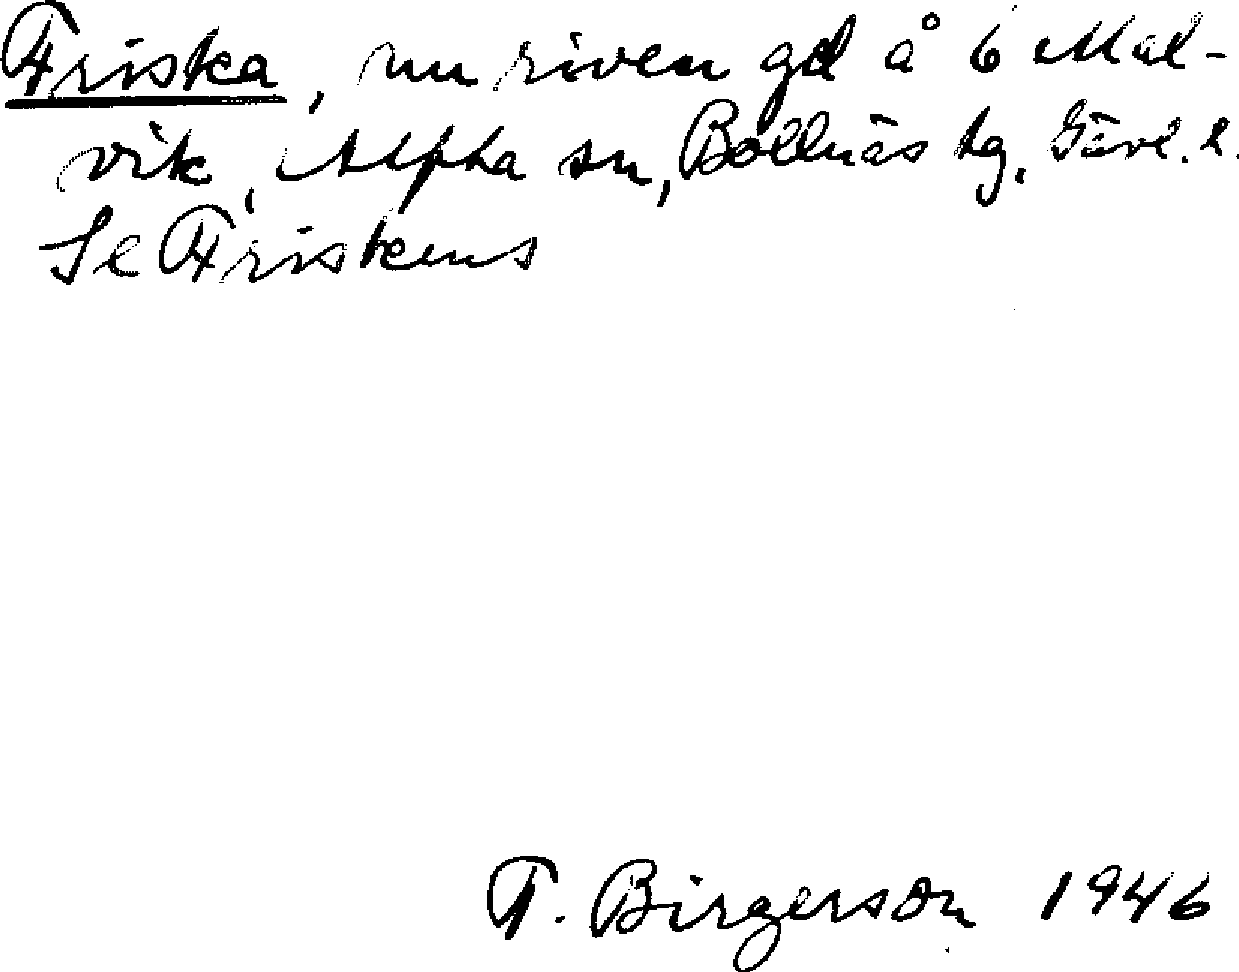 Friska, nu riven gd å 6 Mal-
vik, Alfta sn, Bollnäs tg, Gävl. l.
Se Friskens
T. Birgerson 1946